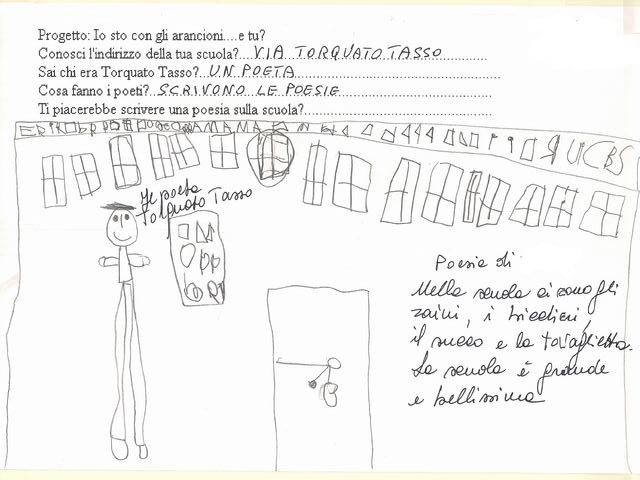 Progetto: Io sto con gli arancioni....e tu?
Conosci l'indirizzo della tua scuola?...VIA TORQUATO TASSO
Sai chi era Torquato Tasso?...UN POETA
Cosa fanno i poeti?...SCRIVONO LE POESIE
Ti piacerebbe scrivere una poesia sulla scuola?
Il poeta
Torquato Tasso
Poesia di
Nella scuola ci sono gli
zaini, i bicchieri,
il succo e la tovaglietta.
La scuola è grande
e bellissima